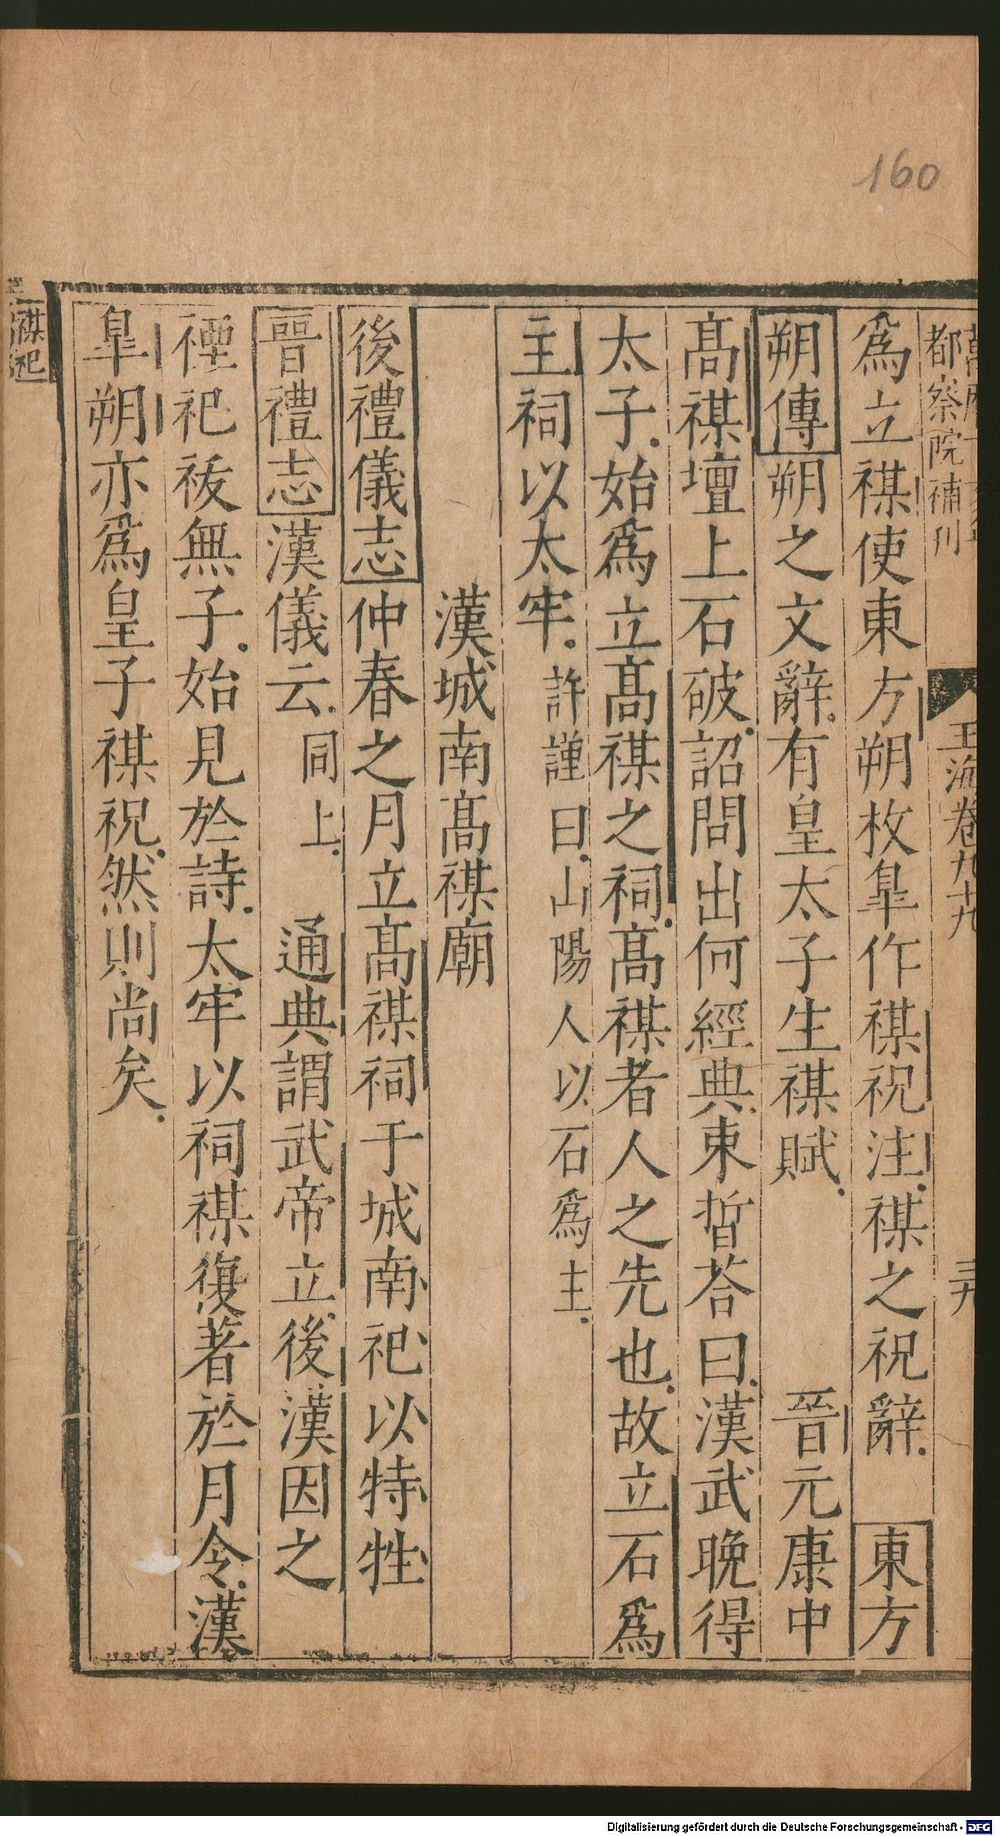 160
都察院補刊
玉海卷九十九
三九
爲立禖使東方朔枚臯作禖祝注禖之祝辭 東方
朔傳朔之文辭有皇太子生禖賦 晉元康中
髙禖壇上石破詔問出何經典束晳荅曰漢武晚得
太子始爲立髙禖之祠髙禖者人之先也故立石爲
主祠以太牢許謹曰山陽人以石爲主
漢城南髙禖廟
後禮儀志仲春之月立髙禖祠于城南祀以特牲
晉禮志漢儀云同上 通典謂武帝立後漢因之
禋祀祓無子始見於詩太牢以祠禖復著於月令漢
臯朔亦爲皇子禖祝然則尚矣
禖祀
Digitalisierung gefördert durch die Deutsche Forschungsgemeinschaft - DFG